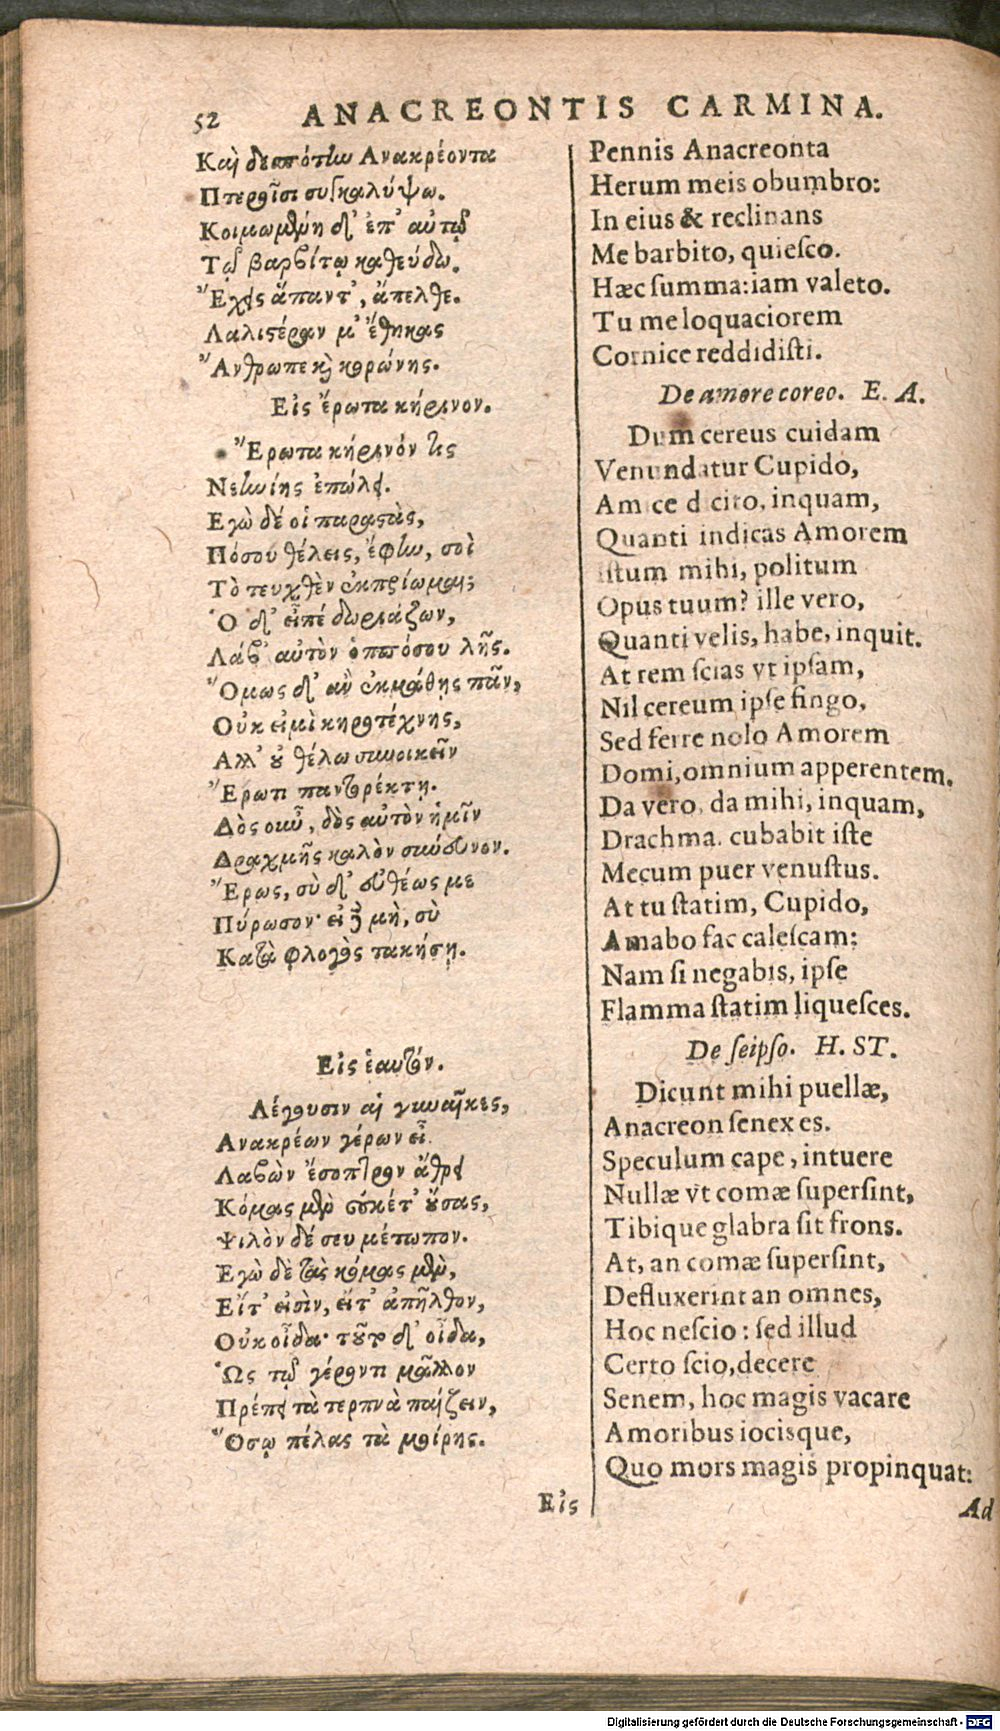 52 ANACREONTIS CARMINA.
Καὶ δεσπότην Ἀνακρέοντα
Πτεροῖσι συσκαλύψω.
Κοιμωμένη δ' ἐπ' αὐτῷ
Τῷ βαρβίτῳ καθεύδω.
Ἔχεις ἅπαντ', ἄπελθε.
Λαλιστέραν μ' ἔθηκας
Ἄνθρωπε καὶ κορώνης.
Εἰς ἔρωτα κήρινον.
Ἔρωτα κήρινόν τις
Νεηνίης ἐπώλει.
Εγὼ δέ οἱ παραστὰς,
Πόσου θέλεις, ἔφην, σοὶ
Τὸ τευχθὲν ἐκπρίωμαι;
Ὁ δ' εἶπε δωριάζων,
Λάβ' αὐτὸν ὁππόσου λῇς.
Ὅμως δ' ἂν ἐκμάθῃς πᾶν,
Οὐκ εἰμὶ κηροτέχνης,
Αλλ' οὐ θέλω συνοικεῖν
Ἔρωτι παντορέκτῃ.
Δὸς οὖν, δὸς αὐτὸν ἡμῖν
Δραχμῆς καλὸν σύνευνον.
Ἔρως, σὺ δ' εὐθέως με
Πύρωσον· εἰ δὲ μὴ, σὺ
Κατὰ φλογὸς τακήσῃ.
Εἰς ἑαυτόν.
Λέγουσιν αἱ γυναῖκες,
Ανακρέων γέρων εἶ.
Λαβὼν ἔσοπτρον ἄθρει
Κόμας μὲν οὐκέτ' οὔσας,
Ψιλὸν δέ σευ μέτωπον.
Εγὼ δὲ τὰς κόμας μὲν,
Εἴτ' εἰσὶν, εἴτ' ἀπῆλθον,
Οὐκ οἶδα· τοῦτο δ' οἶδα,
Ὡς τῷ γέροντι μᾶλλον
Πρέπει τὰ τερπνὰ παίζειν,
Ὅσῳ πέλας τὰ μοίρης.
Εἰς
Pennis Anacreonta
Herum meis obumbro:
In eius & reclinans
Me barbito, quiesco.
Hæc summa: iam valeto.
Tu me loquaciorem
Cornice reddidisti.
De amore coreo. E. A.
Dum cereus cuidam
Venundatur Cupido,
Amice dcito, inquam,
Quanti indicas Amorem
istum mihi, politum
Opus tuum? ille vero,
Quanti velis, habe, inquit.
At rem scias vt ipsam,
Nil cereum ipse fingo,
Sed ferre nolo Amorem
Domi, omnium apperentem.
Da vero, da mihi, inquam,
Drachma. cubabit iste
Mecum puer venustus.
At tu statim, Cupido,
Amabo fac calescam:
Nam si negabis, ipse
Flamma statim liquesces.
De seipso. H. ST.
Dicunt mihi puellæ,
Anacreon senex es.
Speculum cape, intuere
Nullæ vt comæ supersint,
Tibique glabra sit frons.
At, an comæ supersint,
Defluxerint an omnes,
Hoc nescio: sed illud
Certo scio, decere
Senem, hoc magis vacare
Amoribus iocisque,
Quo mors magis propinquat:
Ad
Digitalisierung gefördert durch die Deutsche Forschungsgemeinschaft - DFG